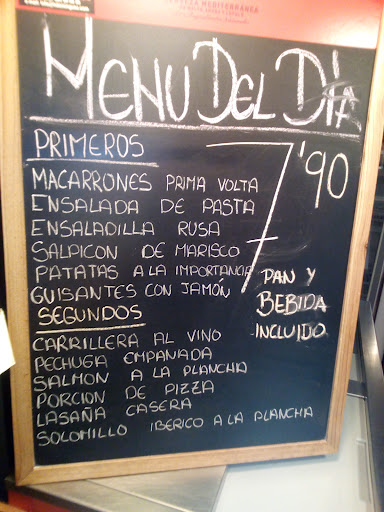 CERVEZA MEDITERRÁNEA
MENU DEL DÍA
PRIMEROS
7'90
MACARRONES PRIMA VOLTA
ENSALADA DE PASTA
ENSALADILLA RUSA
SALPICON DE MARISCO
PATATAS A LA IMPORTANCIA
GUISANTES CON JAMÓN
PAN Y
BEBIDA
INCLUIDO
SEGUNDOS
CARRILLERA AL VINO
PECHUGA EMPANADA
SALMON A LA PLANCHA
PORCION DE PIZZA
LASAÑA CASERA
SOLOMILLO IBERICO A LA PLANCHA